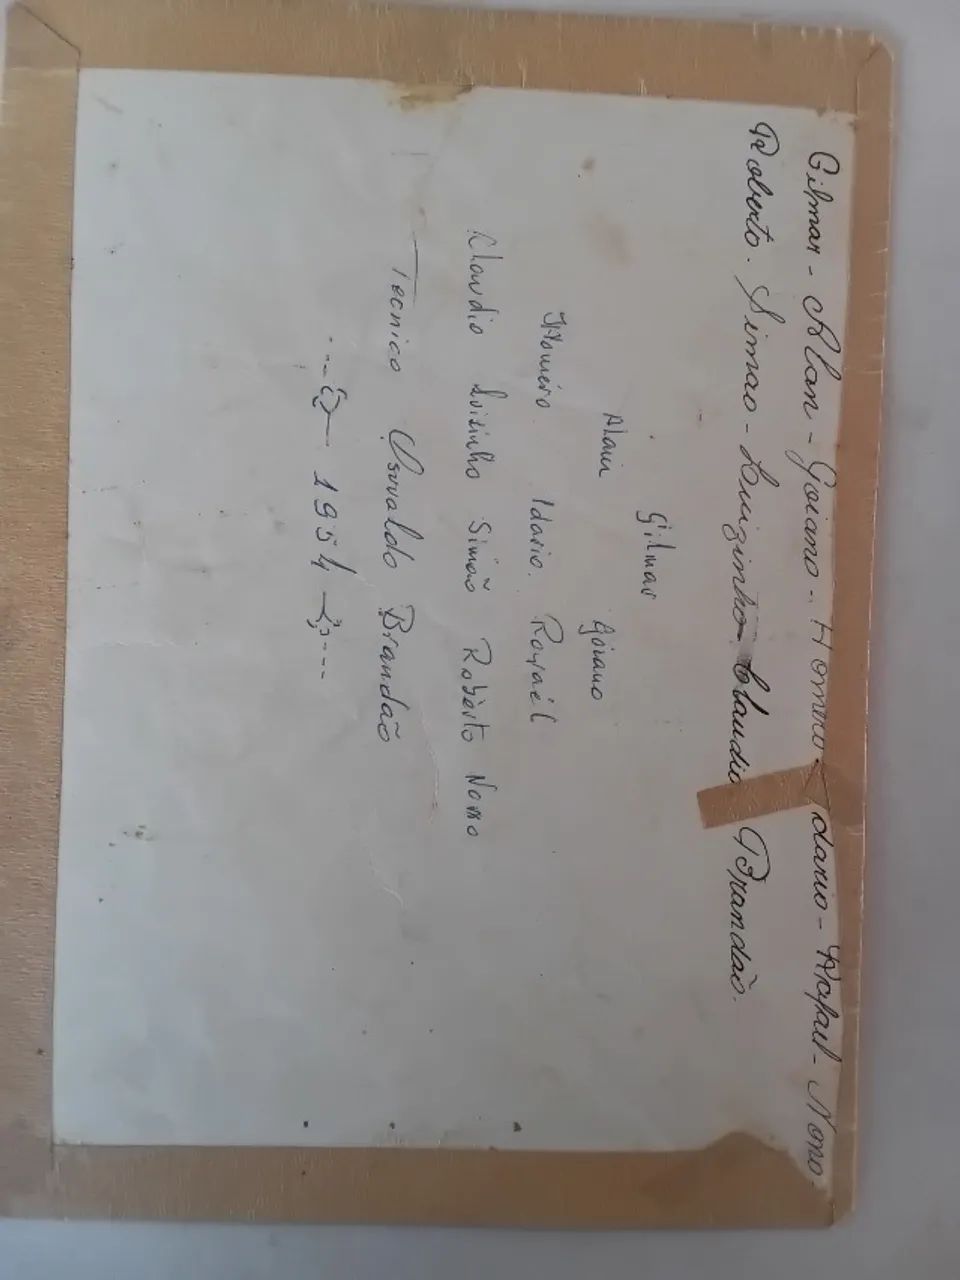 Gilmar - Alan - Goiano - Homero - Idario - Rafael - Nono.
Roberto. Simao - Luizinho. Claudio Brandão.
Gilmar
Alan Goiano
Homero Idario. Rafaél
Claudio Luizinho Simão Robèrto Nono
Tecnico Osvaldo Brandão
1954